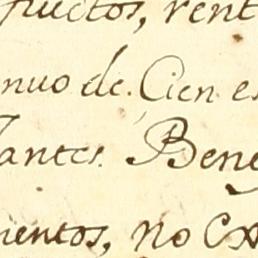 fructos, rent
nuo de Cien es
tantes. Bene
ientos, no Cx